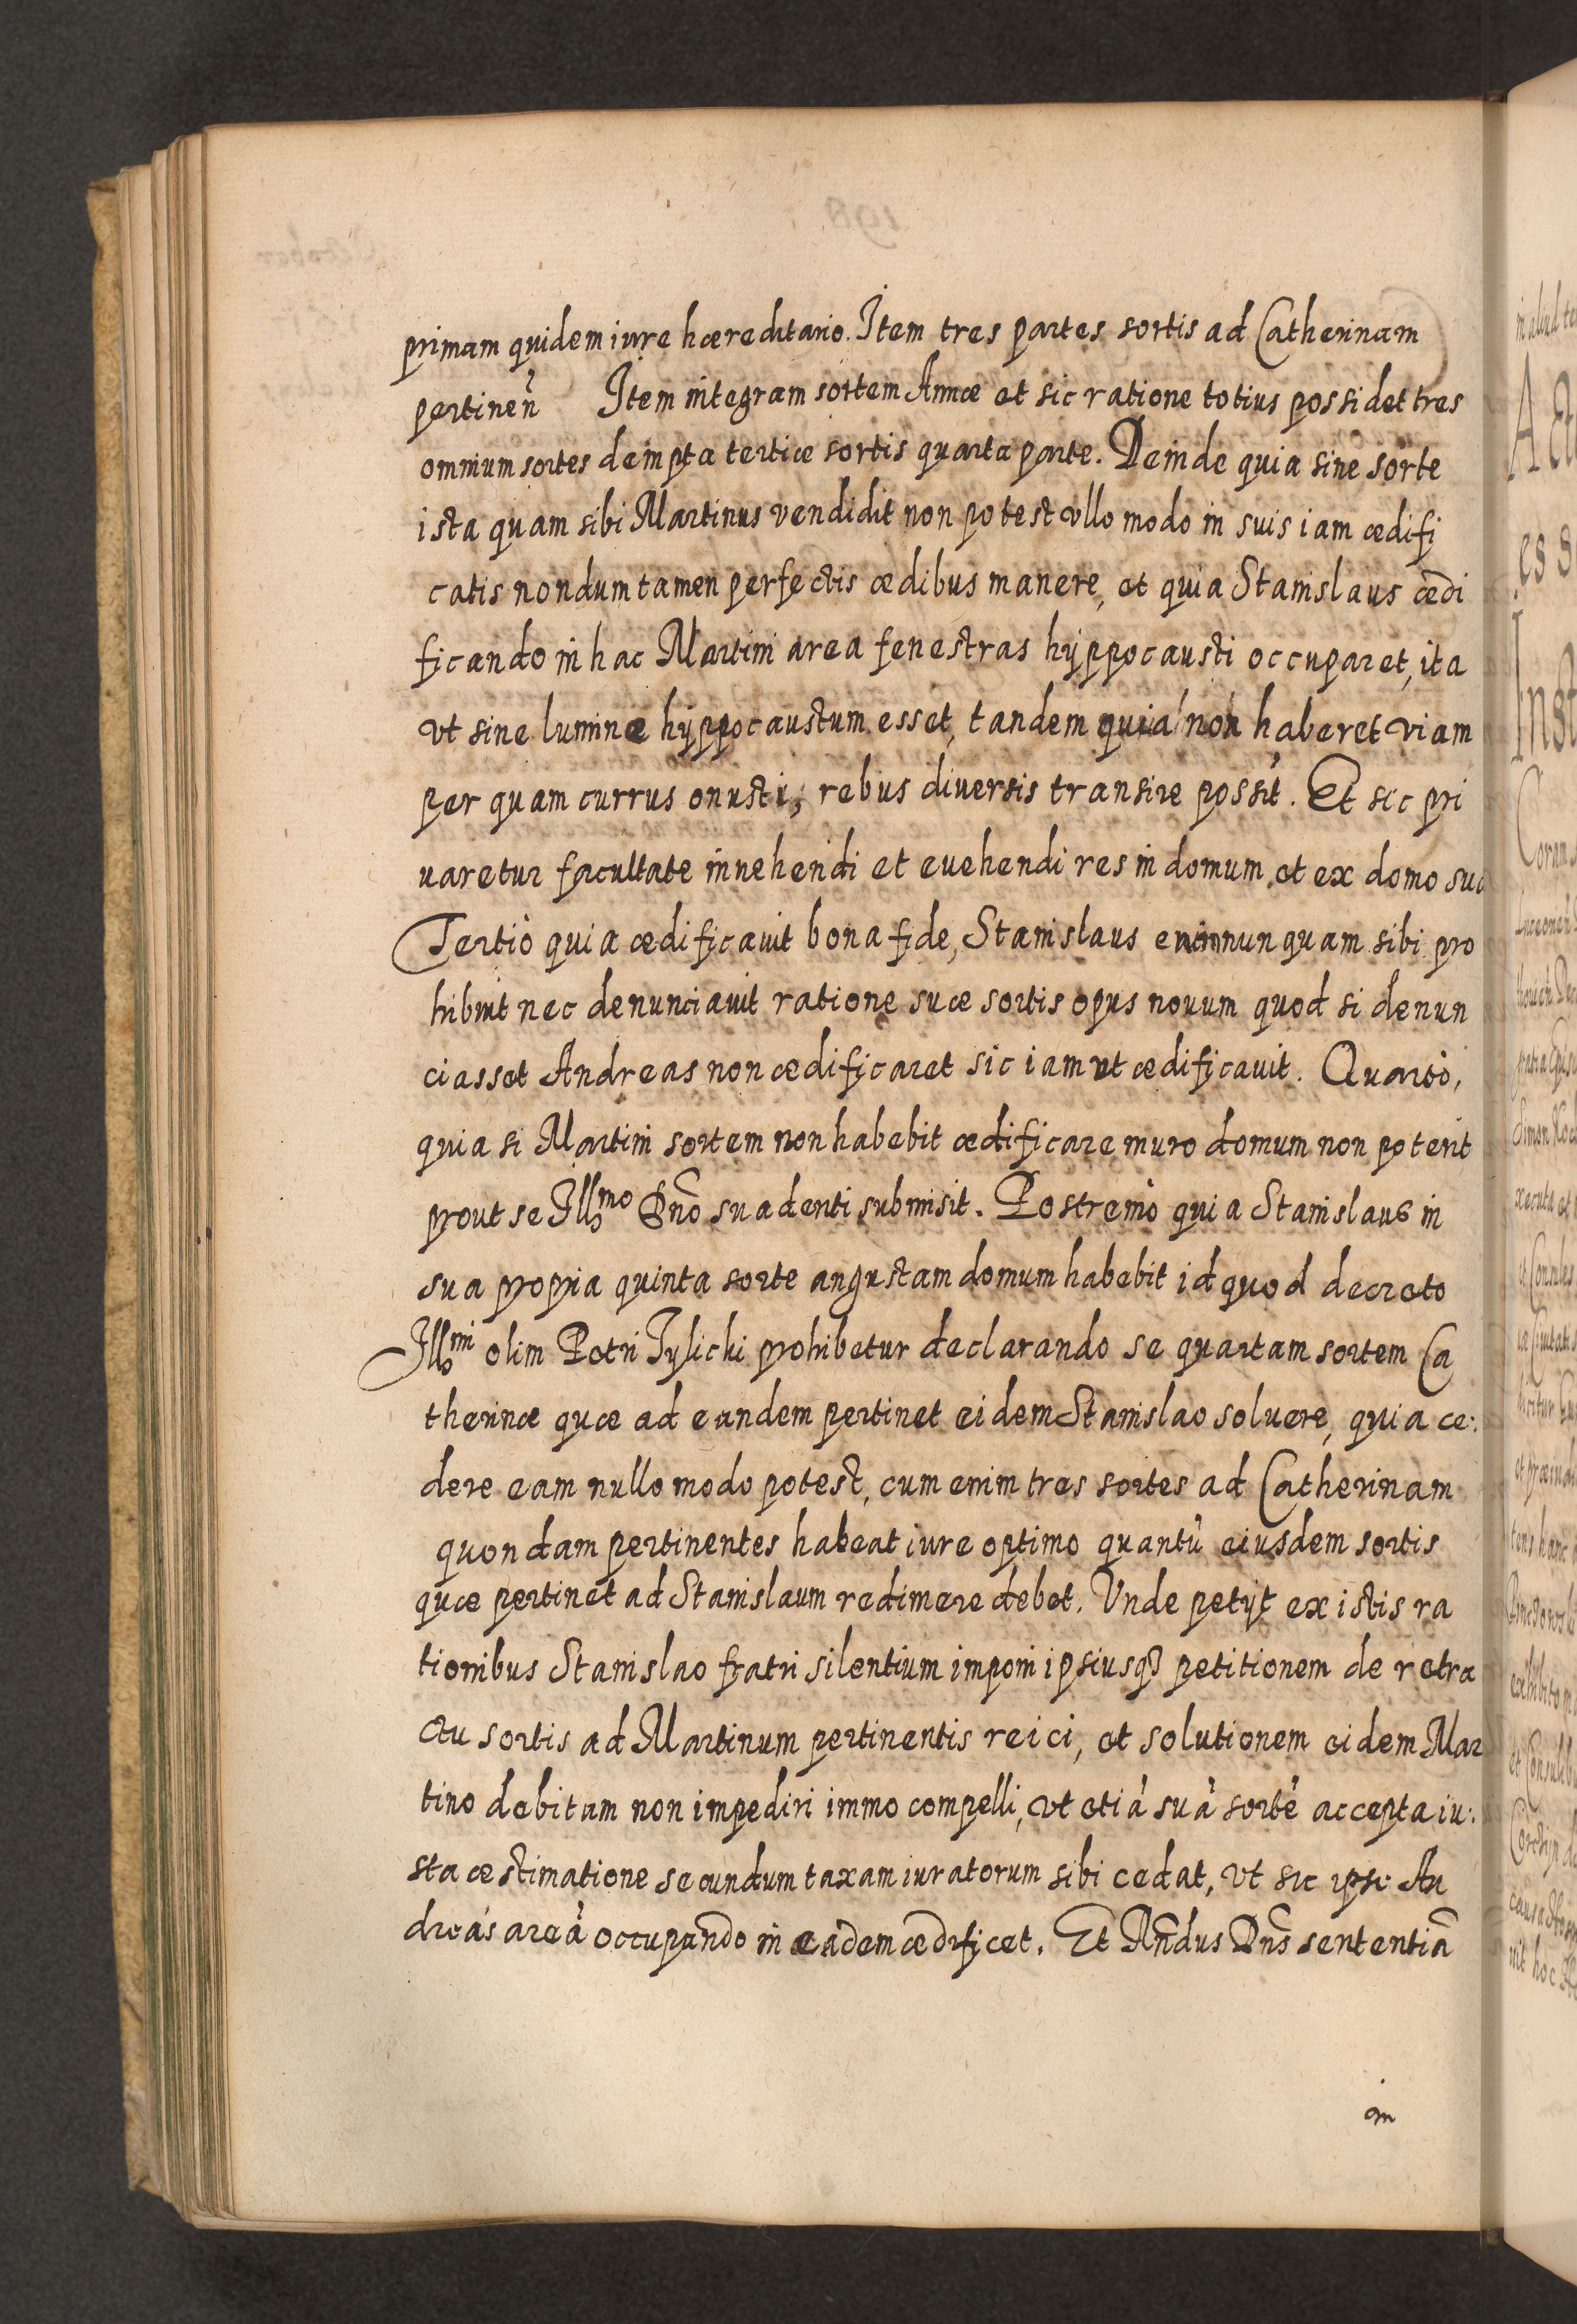 primam quidem iure hæreditario. Item tres partes sortis ad Catherinam
pertineñ Item integram sortem Annæ et sic ratione totius possidet tres
omnium sortes dempta tertiæ sortis quarta parte. Deinde quia sine sorte
ista quam sibi Martinus vendidit non potest vllo modo in suis iam ædifi
catis nondum tamen perfectis ædibus manere, et quia Stanislaus ædi
ficando in hac Martini area fenestras hyppocausti occuparet, ita
vt sine lumine hyppocaustum esset, tandem quia non haberet viam
per quam currus onusti, rebus diuersis transire possit. Et sic pri
uaretur facultate inuehendi et euehendi res in domum et ex domo sua
Tertiò quia ædificauit bona fide, Stanislaus enim nunquam sibi pro
hibuit nec denunciauit ratione suæ sortis opus nouum quod si denun
ciasset Andreas non ædificaret sic iam vt ædificauit. Quartò,
quia si Martini sortem non habebit ædificare muro domum non poterit
prout se Illmo Dño suadenti submisit. Postremò quia Stanislaus in
sua propria quinta sorte angustam domum habebit id quod decreto
Illmi olim Petri Tylicki prohibetur declarando se quartam sortem Ca
therinæ quæ ad eundem pertinet eidem Stanislao soluere, quia ce:
dere eam nullo modo potest, cum enim tres sortes ad Catherinam
quondam pertinentes habeat iure optimo quantù eiusdem sortis
quæ pertinet ad Stanislaum redimere debet. Vnde petÿt ex istis ra
tionibus Stanislao fratri silentium imponi ipsiusq3 petitionem de retra
ctu sortis ad Martinum pertinentis reici, et solutionem eidem Mar
tino debitam non impediri immo compelli, vt etiã suã sortẽ accepta iu:
sta æstimatione secundum taxam iuratorum sibi cedat, vt sic ipse An
dreas areã occupando in eadem ædificet. Et Rñdus Dñs sententiã
in